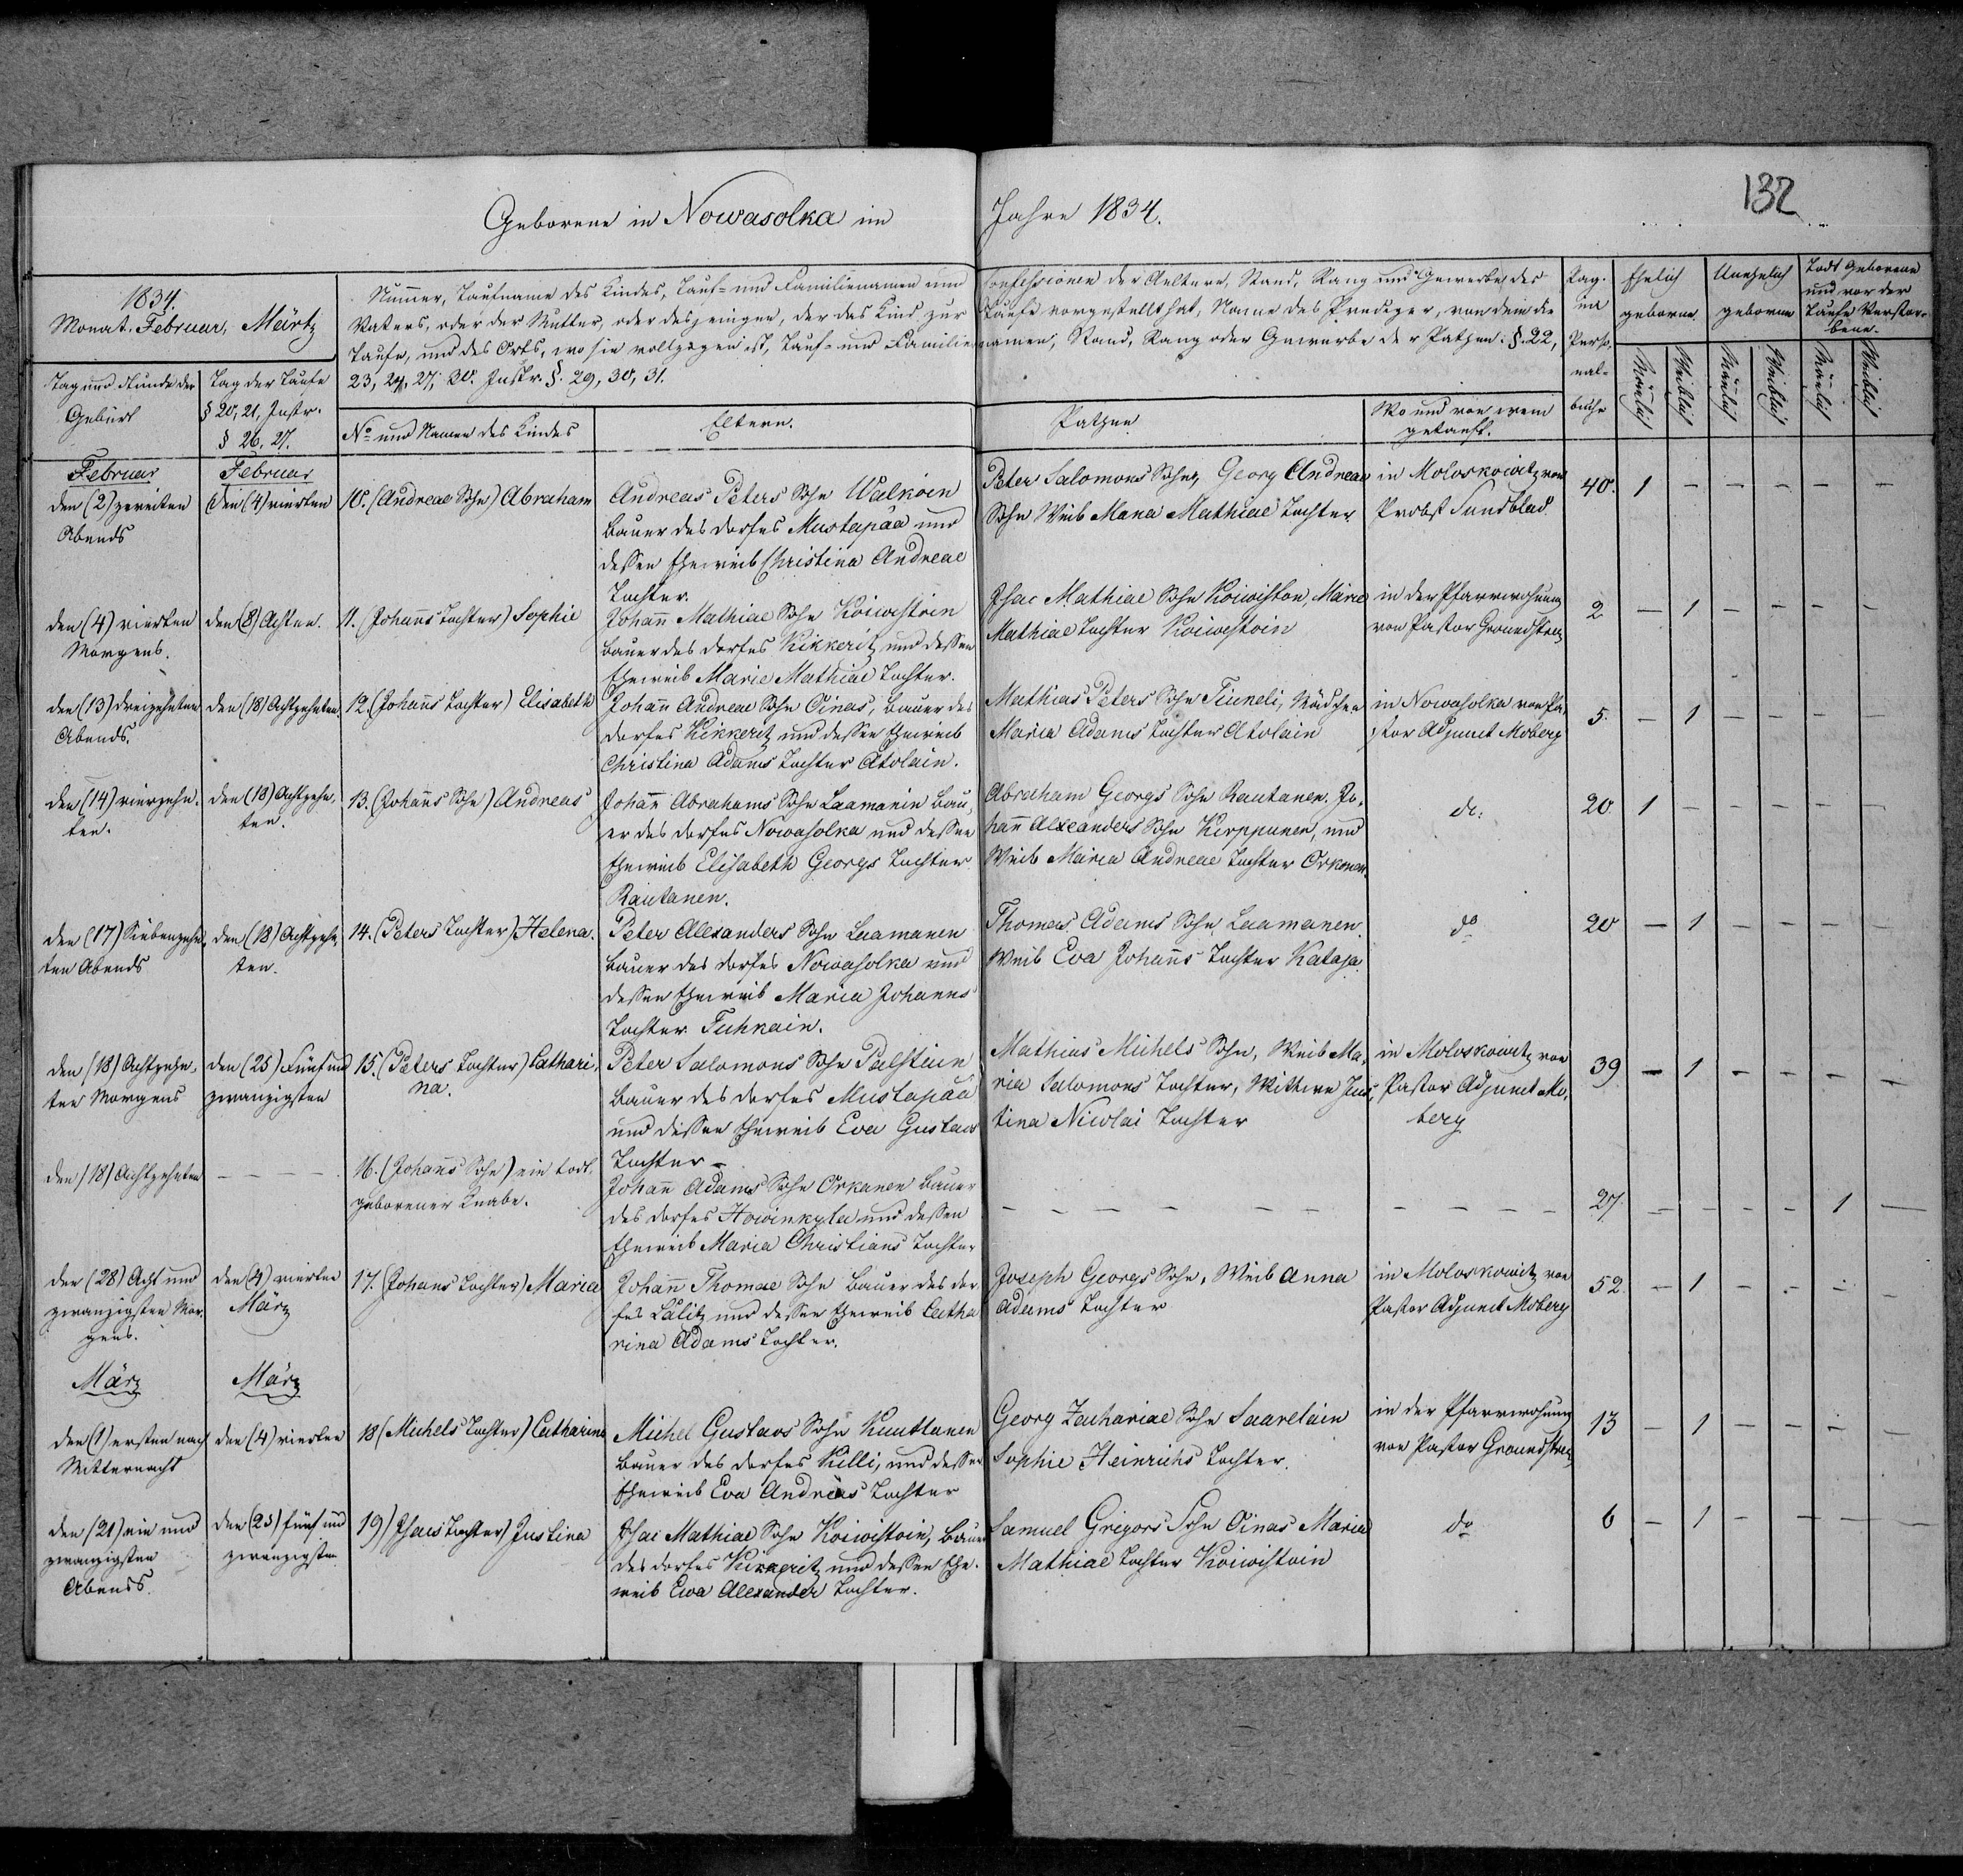 132
Geborene in Nowasolka im Jahre 1834.
1834.
Monat. Februar, Märtz
Tag und Stunde der
Geburt
Tag der Taufe
§ 20, 21, Instr.
§ 26, 27.
Numer, Taufname des Kindes, Tauf- und Familienamen und Confessionen der Aeltern, Stand, Rang und Gewerbe des
Vaters, oder der Mutter, oder desjenigen, der das Kind zur Taufe vorgestellt hat, Name des Prediger, von dem die
Taufe, und des Orts, wo sie vollzogen ist, Tauf- und Familienamen, Stand, Rang oder Gewerbe der Pathen: §. 22,
23, 24, 27, 28. Instr. §. 29, 30, 31.
No und Namen des Kindes
Eltern.
Pathen
Wo und von wem
getauft.
Pag.
in
Perso,
nal-
buche
Ehelich
geborne.
Unehelich
geborne
Todt Geborene
und vor der
Taufe Verstor-
bene.
Mänlich
Weiblich
Mänlich
Weiblich
Mänlich
Weiblich
Februar
den (2) zweiten
Abends
Februar
den (4) vierten
10. (Andreae Sohn) Abraham
Andreas Peters Sohn Walkoin
Bauer des Dorfes Mustapää und
dessen Eheweib Christina Andreae
Tochter.
Peter Salomons Sohn, Georg Andreae
Sohn Weib Maria Mathiae Tochter
in Moloskowitz von
Probst Sundblad
40. 1 - - - - -
den (4) vierten
Morgens.
den (8) Achten.
11. (Johanns Tochter) Sophie
Johann Mathiae Sohn Koiwistoin
Bauer des Dorfes Kikkeritz und dessen
Eheweib Marie Mathiae Tochter.
Isac Mathiae Sohn Koiwiston, Marie
Mathiae Tochter Koiwistoin
in der Pfarrwohnung
von Pastor Groundstroem
2 - 1 - - - -
den (13) dreizehnten
Abends.
den (18) Achtzehnten.
12. (Johanns Tochter) Elisabeth
Johann Andreae Sohn Oinas, Bauer des
Dorfes Kikkeritz und dessen Eheweib
Christina Adams Tochter Atolain.
Mathias Peters Sohn Tiuneli, Mädchen
Maria Adams Tochter Atolain
in Nowasolka von Pa,
stor Adjunct Moberg
5. - 1 - - - -
den (14) vierzehn.
ten.
den (18) Achtzehn,
ten.
13. (Johanns Sohn) Andreas
Johann Abrahams Sohn Laamanin Bau,
er des Dorfes Nowasolka und dessen
Eheweib Elisabeth Georgs Tochter
Rautanen.
Abraham Georgs Sohn Rautanen. Jo,
hann Alexanders Sohn Kirppunen, und
Weib Maria Andreae Tochter Orkonen
do:
20. 1 - - - - -
den (17) Siebenzehn,
ten Abends
den (18) Achtzehn,
ten.
14. (Peters Tochter) Helena.
Peter Alexanders Sohn Laamanen
Bauer des Dorfes Nowasolka und
dessen Eheweib Maria Johanns
Tochter Tuhkain.
Thomas Adams Sohn Laamanen.
Weib Eva Johanns Tochter Kataja.
do
20 - 1 - - - -
den (18) Achtzehn,
ten Morgens
den (25) Fünf und
zwanzigsten
15. (Peters Tochter) Cathari,
na.
Peter Salomons Sohn Palstiun
Bauer des Dorfes Mustapää
und dessen Eheweib Eva Gustavs
Tochter -
Mathias Michels Sohn, Weib Ma,
ria Salomons Tochter, Wittwe Jus,
tina Nicolai Tochter
in Moloskowitz von
Pastor Adjunct Mo,
berg
39. - 1 - - - -
den (18) Achtzehnten
- - - -
16. (Johanns Sohn) ein todt,
geborener Knabe.
Johann Adams Sohn Orkanen Bauer
des Dorfes Howinkyla und dessen
Eheweib Maria Christians Tochter
- - - - - - - - - -
27. - - - - 1 -
den (28) Acht und
zwanzigsten Mor,
gens.
den (4) vierten
März
17. (Johans Tochter) Maria
Johann Thomae Sohn Bauer des Dor
fes Lälitz und dessen Eheweib Catha
rina Adams Tochter.
Joseph Georgs Sohn, Weib Anna
Adams Tochter
in Moloskowitz von
Pastor Adjunct Moberg
52. - 1 - - - -
März
März
den (1) ersten nach
Mitternacht
den (4) vierten
18 (Michels Tochter) Catharina
Michel Gustavs Sohn Kuuttanen
Bauer des Dorfes Killi, und dessen
Eheweib Eva Andreas Tochter
Georg Zachariae Sohn Saarelain
Sophie Heinrichs Tochter.
in der Pfarrwohnung
von Pastor Groundstroem
13 - 1 - - - -
den (21) ein und
zwanzigsten
Abends.
den (25) fünf und
zwanzigsten
19) Isacs Tochter) Justina
Isac Mathiae Sohn Koiwistoin, Bauer
des Dorfes Kikkeritz und dessen Ehe-
weib Ewa Alexander Tochter.
Samuel Grigors Sohn Oinas Maria
Mathiae Tochter Koiwistoin
do
6 - 1 - - - -